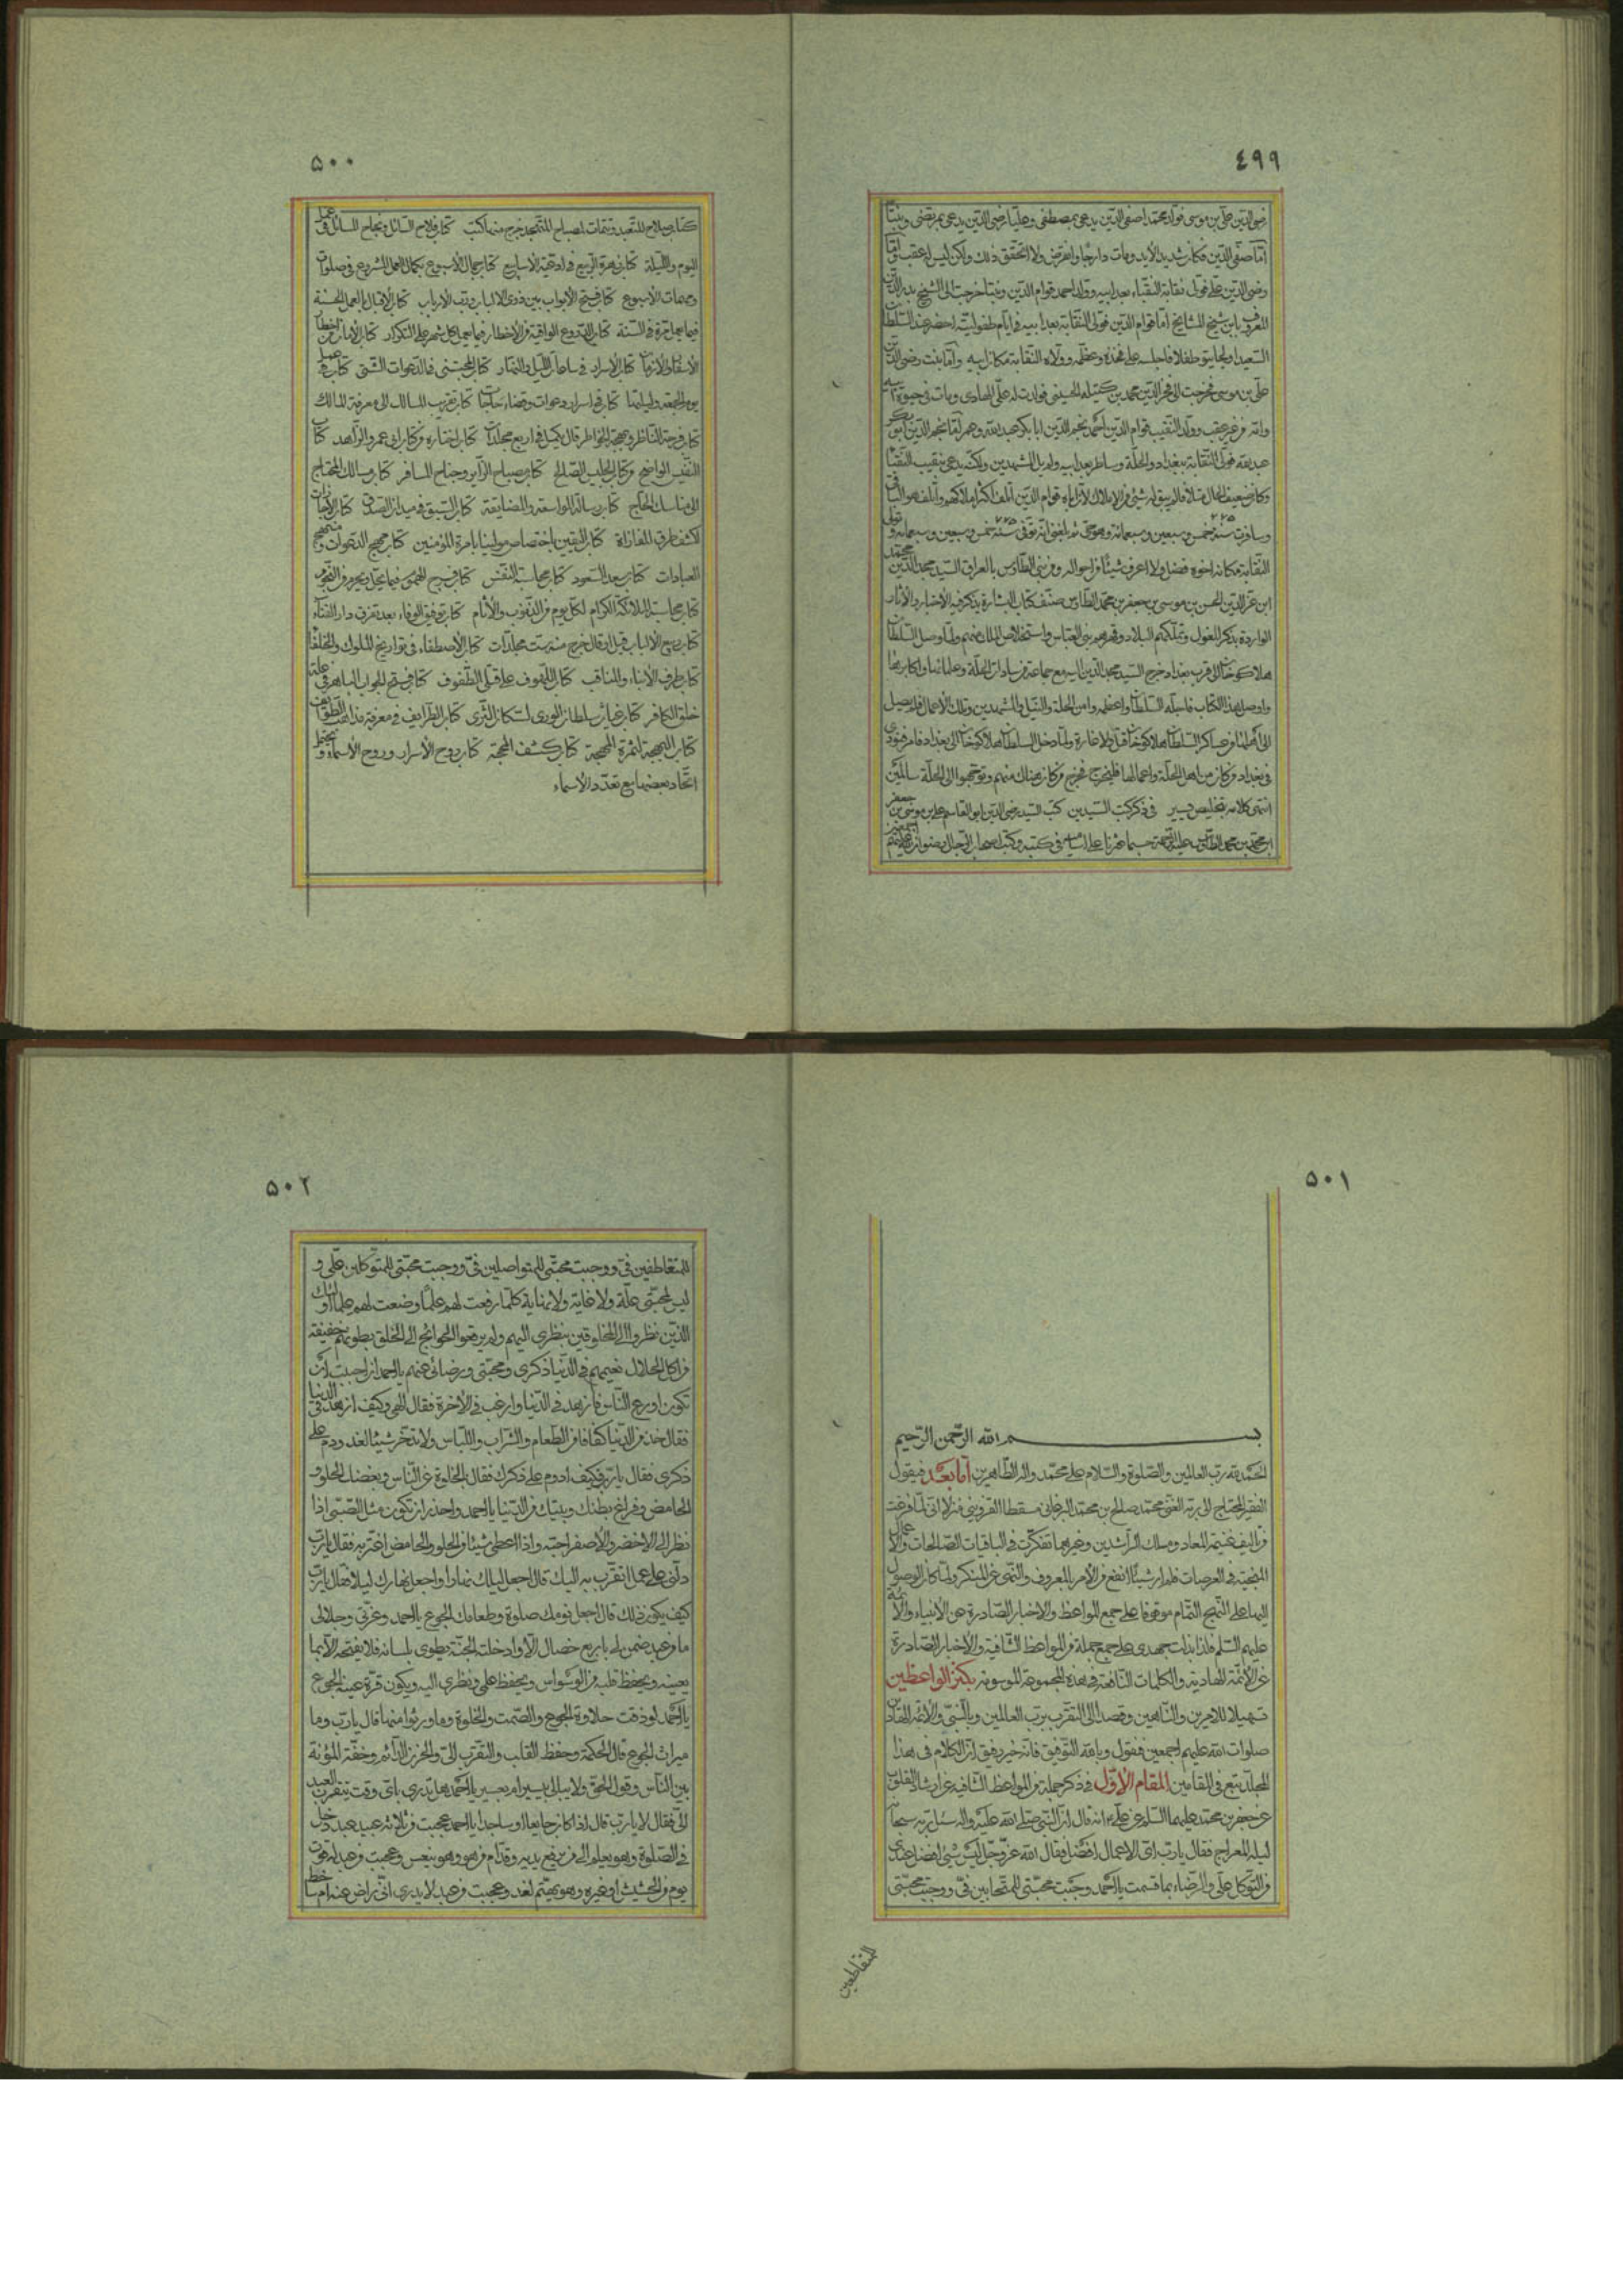 ٤٩٩
رضی الدین علی بن موسی فولد محمدا صفی الدین یدعی بمصطفی وعلیا رضی الدین یدعی بمرتضی وبنتا
اما صفی الدین فکان شدید الاید ومات دارجا وانقرض ولا اتحقق ذلک ولکن لیس له عقب واما
رضی الدین علی فولی نقابة النقباء بعد ابیه وولد احمد قوام الدین وبنتا خرجت الی الشیخ بدر الدین
المعروف بابن شیخ المشایخ اما قوام الدین فولی النقابة بعد ابیه فی ایام طفولیته احضر عند السلطان
السعید اولجایتو طفلا فاجلسه علی فخذه وعظمه وولاه النقابة مکان ابیه واما بنت رضی الدین
علی بن موسی فخرجت الی فخر الدین محمد بن کتیله الحسینی فولدت له علی الهادی ومات فی حیوة ابیه
وامه من غیر عقب وولد النقیب قوام الدین احمد نجم الدین ابا بکر عبد الله وعمر اما نجم الدین ابو بکر
عبد الله فولی النقابة ببغداد والحلة وسامرا بعد ابیه ولم یل المشهدین ولکنه یدعی نقیب النقباء
وکان ضعیف الحال
وسافرت سنة خمس وسبعین وسبعمائة وهو حی ثم بلغنی انه توفی سنة خمس وسبعین وسبعمائة وتولی
النقابة مکانه اخوه فضل ولا اعرف شیئا من احواله ومن بنی الطاوس بالعراق السید مجد الدین محمد
ابن عز الدین الحسن بن موسی بن جعفر بن محمد الطاوس صنف کتاب البشارة یذکر فیه الاخبار والاثار
الواردة بذکر المغول وتملکهم البلاد وقهرهم بنی العباس واستخلاص الملک منهم ولما وصل السلطان
هلاکوخان الی قرب بغداد خرج السید مجد الدین الیه مع جماعة من سادات الحلة وعلمائها واکابرها
واوصل بهذا الکتاب فاجله السلطان واعظمه وامن الحلة والنیل والمشهدین وتلک الاعمال فلم یصل
الی اهلها من عساکر السلطان هلاکوخان قتل ولا غارة ولما دخل السلطان هلاکوخان الی بغداد فامر فنودی
فی بغداد من کان من اهل الحلة واعمالها فلیخرج فخرج من کان هناک منهم وتوجهوا الی الحلة سالمین
انتهی کلامه بتخلیص یسیر فی ذکر کتب السیدین کتب السید رضی الدین ابو القاسم علی بن موسی بن جعفر
ابن محمد بن محمد الطاوس علیه الرحمة حسبما عثرنا علی اسامیه فی کتبه وکتب اصحاب الرجال رضوان الله علیهم
٥٠٠
کتاب صلاح للتعبد وتتمات لمصباح المتهجد خرج منها کتب کتاب فلاح السائل ونجاح المسائل فی عمل
الیوم واللیلة کتاب زهرة الربیع فی ادعیة الاسابیع کتاب جمال الاسبوع بکمال العمل المشروع فی صلوات
ومهمات الاسبوع کتاب فتح الابواب بین ذوی الالباب ورب الارباب کتاب الاقبال بالعمل الحسنة
فیما یعمل مرة فی السنة کتاب الدروع الواقیة من الاخطار فیما یعمل کل شهر علی التکرار کتاب الامان من اخطار
الاسفار والازمان کتاب الاسرار فی ساعات اللیل والنهار کتاب المجتنی فی الدعوات الشتی کتاب عمل
یوم الجمعة ولیلتها کتاب فی اسرار دعوات وقضاء حاجات کتاب تقریب السالک الی معرفة المالک
کتاب فرحة الناظر وبهجة الخواطر قال یکمل فی اربع مجلدات کتاب اختاره من کتاب ابی عمرو الزاهد کتاب
النفیس الواضح من کتاب الجلیس الصالح کتاب مصباح الزایر وجناح المسافر کتاب مسالک المحتاج
الی مناسک الحاج کتاب رسالة المواسعة والمضایقة کتاب السبق فی میدان الصدق کتاب الاجازات
لکشف طرق المفازات کتاب الیقین باختصاص مولینا بامرة المؤمنین کتاب مهج الدعوات ومنهج
العبادات کتاب سعد السعود کتاب محاسبة النفس کتاب فرج المهموم فیما یحل ویحرم من النجوم
کتاب محاسبة الملائکة الکرام لکل یوم من الذنوب والاثام کتاب توفیق الوفاء بعد تفرق دار الفناء
کتاب ربیع الالباب قیل او قال خرج منه ست مجلدات کتاب الاصطفاء فی تواریخ الملوک والخلفاء
کتاب طرف الانباء والمناقب کتاب اللهوف علی قتلی الطفوف کتاب فتح الجواب الباهر فی علة
خلق الکافر کتاب غیاث سلطان الوری لسکان الثری کتاب الطرایف فی معرفة مذاهب الطوائف
کتاب البهجة لثمرة المهجة کتاب کشف المحجة کتاب روح الاسرار وروح الاسماء ویحتمل
اتحاد بعضها مع تعدد الاسماء
٥٠١
بسم الله الرحمن الرحیم
الحمد لله رب العالمین والصلوة والسلام علی محمد واله الطاهرین اما بعد فیقول
الفقیر المحتاج الی ربه الغنی محمد صالح بن محمد البرغانی مسقطا القزوینی منزلا انی لما فرغت
من تالیف غنیمة المعاد ومسلک الراشدین وغیرهما تفکرت فی الباقیات الصالحات والاعمال
المنجیة فی العرصات فلم ار شیئا انفع من الامر بالمعروف والنهی عن المنکر ولما کان الوصول
الیها علی النهج التمام موقوفا علی جمع المواعظ والاخبار الصادرة عن الانبیاء والائمة
علیهم السلم فلذا بذلت جهدی علی جمع جملة من المواعظ الشافیة والاخبار الصادرة
عن الائمة الهادیة والکلمات النافعة فی هذه المجموعة الموسومة بکنز الواعظین
تسهیلا للامرین والناهین وقصدا الی التقرب برب العالمین وبالنبی والائمة الهادین
صلوات الله علیهم اجمعین فنقول وبالله التوفیق فانه خیر رفیق ان الکلام فی هذا
المجلد یقع فی المقامین المقام الاول فی ذکر جملة من المواعظ الشافیة عن ارشاد القلوب
عن جعفر بن محمد علیهما السلم عن علی ع انه قال ان النبی صلی الله علیه واله سئل ربه سبحانه
لیلة المعراج فقال یا رب ای الاعمال افضل فقال الله عز وجل لیس شئ افضل عندی
من التوکل علی والرضاء بما قسمت یا احمد وجبت محبتی للمتحابین فی ووجبت محبتی
للمتقاطعین
٥٠٢
للمتعاطفین فی ووجبت محبتی للمتواصلین فی ووجبت محبتی للمتوکلین علی و
لیس لمحبتی علة ولا غایة ولا نهایة کلما رفعت لهم علما وضعت لهم علما اولئک
الذین نظروا الی المخلوقین بنظری الیهم ولم یرفعوا الحوائج الی الخلق بطونهم خفیفة
من اکل الحلال نعیمهم فی الدنیا ذکری ومحبتی ورضائی عنهم یا احمد ان احببت ان
تکون اورع الناس فازهد فی الدنیا وارغب فی الاخرة فقال الهی وکیف ازهد فی الدنیا
فقال خذ من الدنیا کفافا من الطعام والشراب واللباس ولا تدخر شیئا لغد ودم علی
ذکری فقال یا رب فکیف ادوم علی ذکرک فقال بالخلوة عن الناس وبغضک الحلو و
الحامض وفراغ بطنک وبیتک من الدنیا یا احمد واحذر ان تکون مثل الصبی اذا
نظر الی الاخضر والاصفر احبه واذا اعطی شیئا من الحلو والحامض اغتر به فقال یا رب
دلنی علی عمل اتقرب به الیک قال اجعل لیلک نهارا واجعل نهارک لیلا فقال یا رب
کیف یکون ذلک قال اجعل نومک صلوة وطعامک الجوع یا احمد وعزتی وجلالی
ما من عبد ضمن لی باربع خصال الا وادخلته الجنة یطوی بلسانه فلا یفتحه الا بما
یعینه ویحفظ قلبه من الوسواس ویحفظ علمی ونظری الیه ویکون قرة عینه الجوع
یا احمد لو ذقت حلاوة الجوع والصمت والخلوة وما ورثوا منها قال یا رب وما
میراث الجوع قال الحکمة وحفظ القلب والتقرب الی والحزن الدائم وخفة المؤنة
بین الناس وقول الحق ولا یبالی بیسیر ام بعسیر یا احمد هل تدری بای وقت یتقرب العبد
الی فقال لا یا رب قال اذا کان جایعا او ساجدا یا احمد عجبت من ثلاثة عبید عبد دخل
فی الصلوة وهو یعلم الی من یرفع یدیه وقدام من هو وهو ینعس وعجبت من عبد له قوت
یوم من الحشیش او غیره وهو یهتم لغد وعجبت من عبد لا یدری انی راض عنه ام ساخط